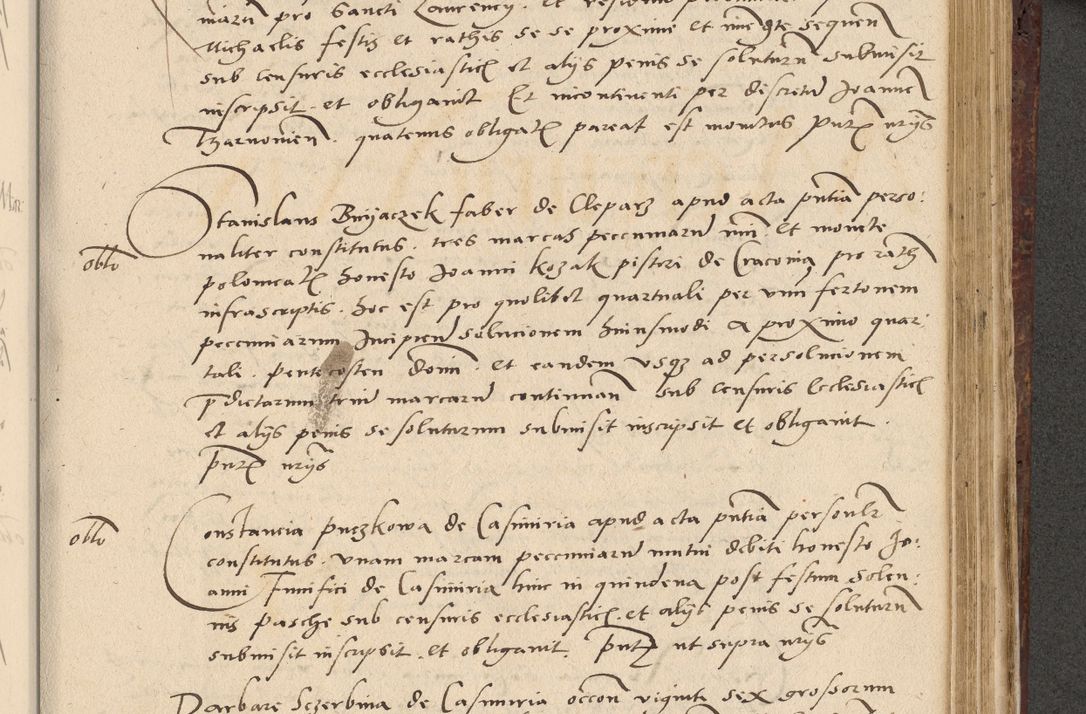 pro Sancti Laurency. Et residuum
Michaelis festis et rathis se se proxime et immediate sequen
sub censuris ecclesiastic et alijs penis se soluturum submisit
inscripsit et obligavit Et incontinenti per discretum Joannem
quatenus obligat pareat est monitus
Stanislaus Bnyaczek faber de Cleparz apud acta pntia perso:
naliter constitutus. tres marcas pecuniarum num. et monete
polonicalis honesto Joanni Kozak pistori de Cracovia pro rathis
infrascriptis. hoc est pro quolibet quartuali per unum fertonem
pecuniarum Incipiend solucionem huiusmodi a proximo quar:
tali. pentecosten domini. et eandem usque ad persolucionem
pdictarum trium marcarum continuan sub censuris Ecclesiastic
et alijs penis se soluturum submisit inscripsit et obligavit.
obllo
Constancia puczkowa de Casimiria apud acta pntia personlr
constitutus. unam marcam pecuniarum mutui debiti honesto Jo:
anni Funifici de Casimiria hinc in quindena post festum solen:
nis pasche sub censuris ecclesiastic. et alijs penis se soluturum
submisit inscripsit. et obligavit. ut supra
obllo
Barbare Sczerbina de Casimiria occon viginti sex grossorum